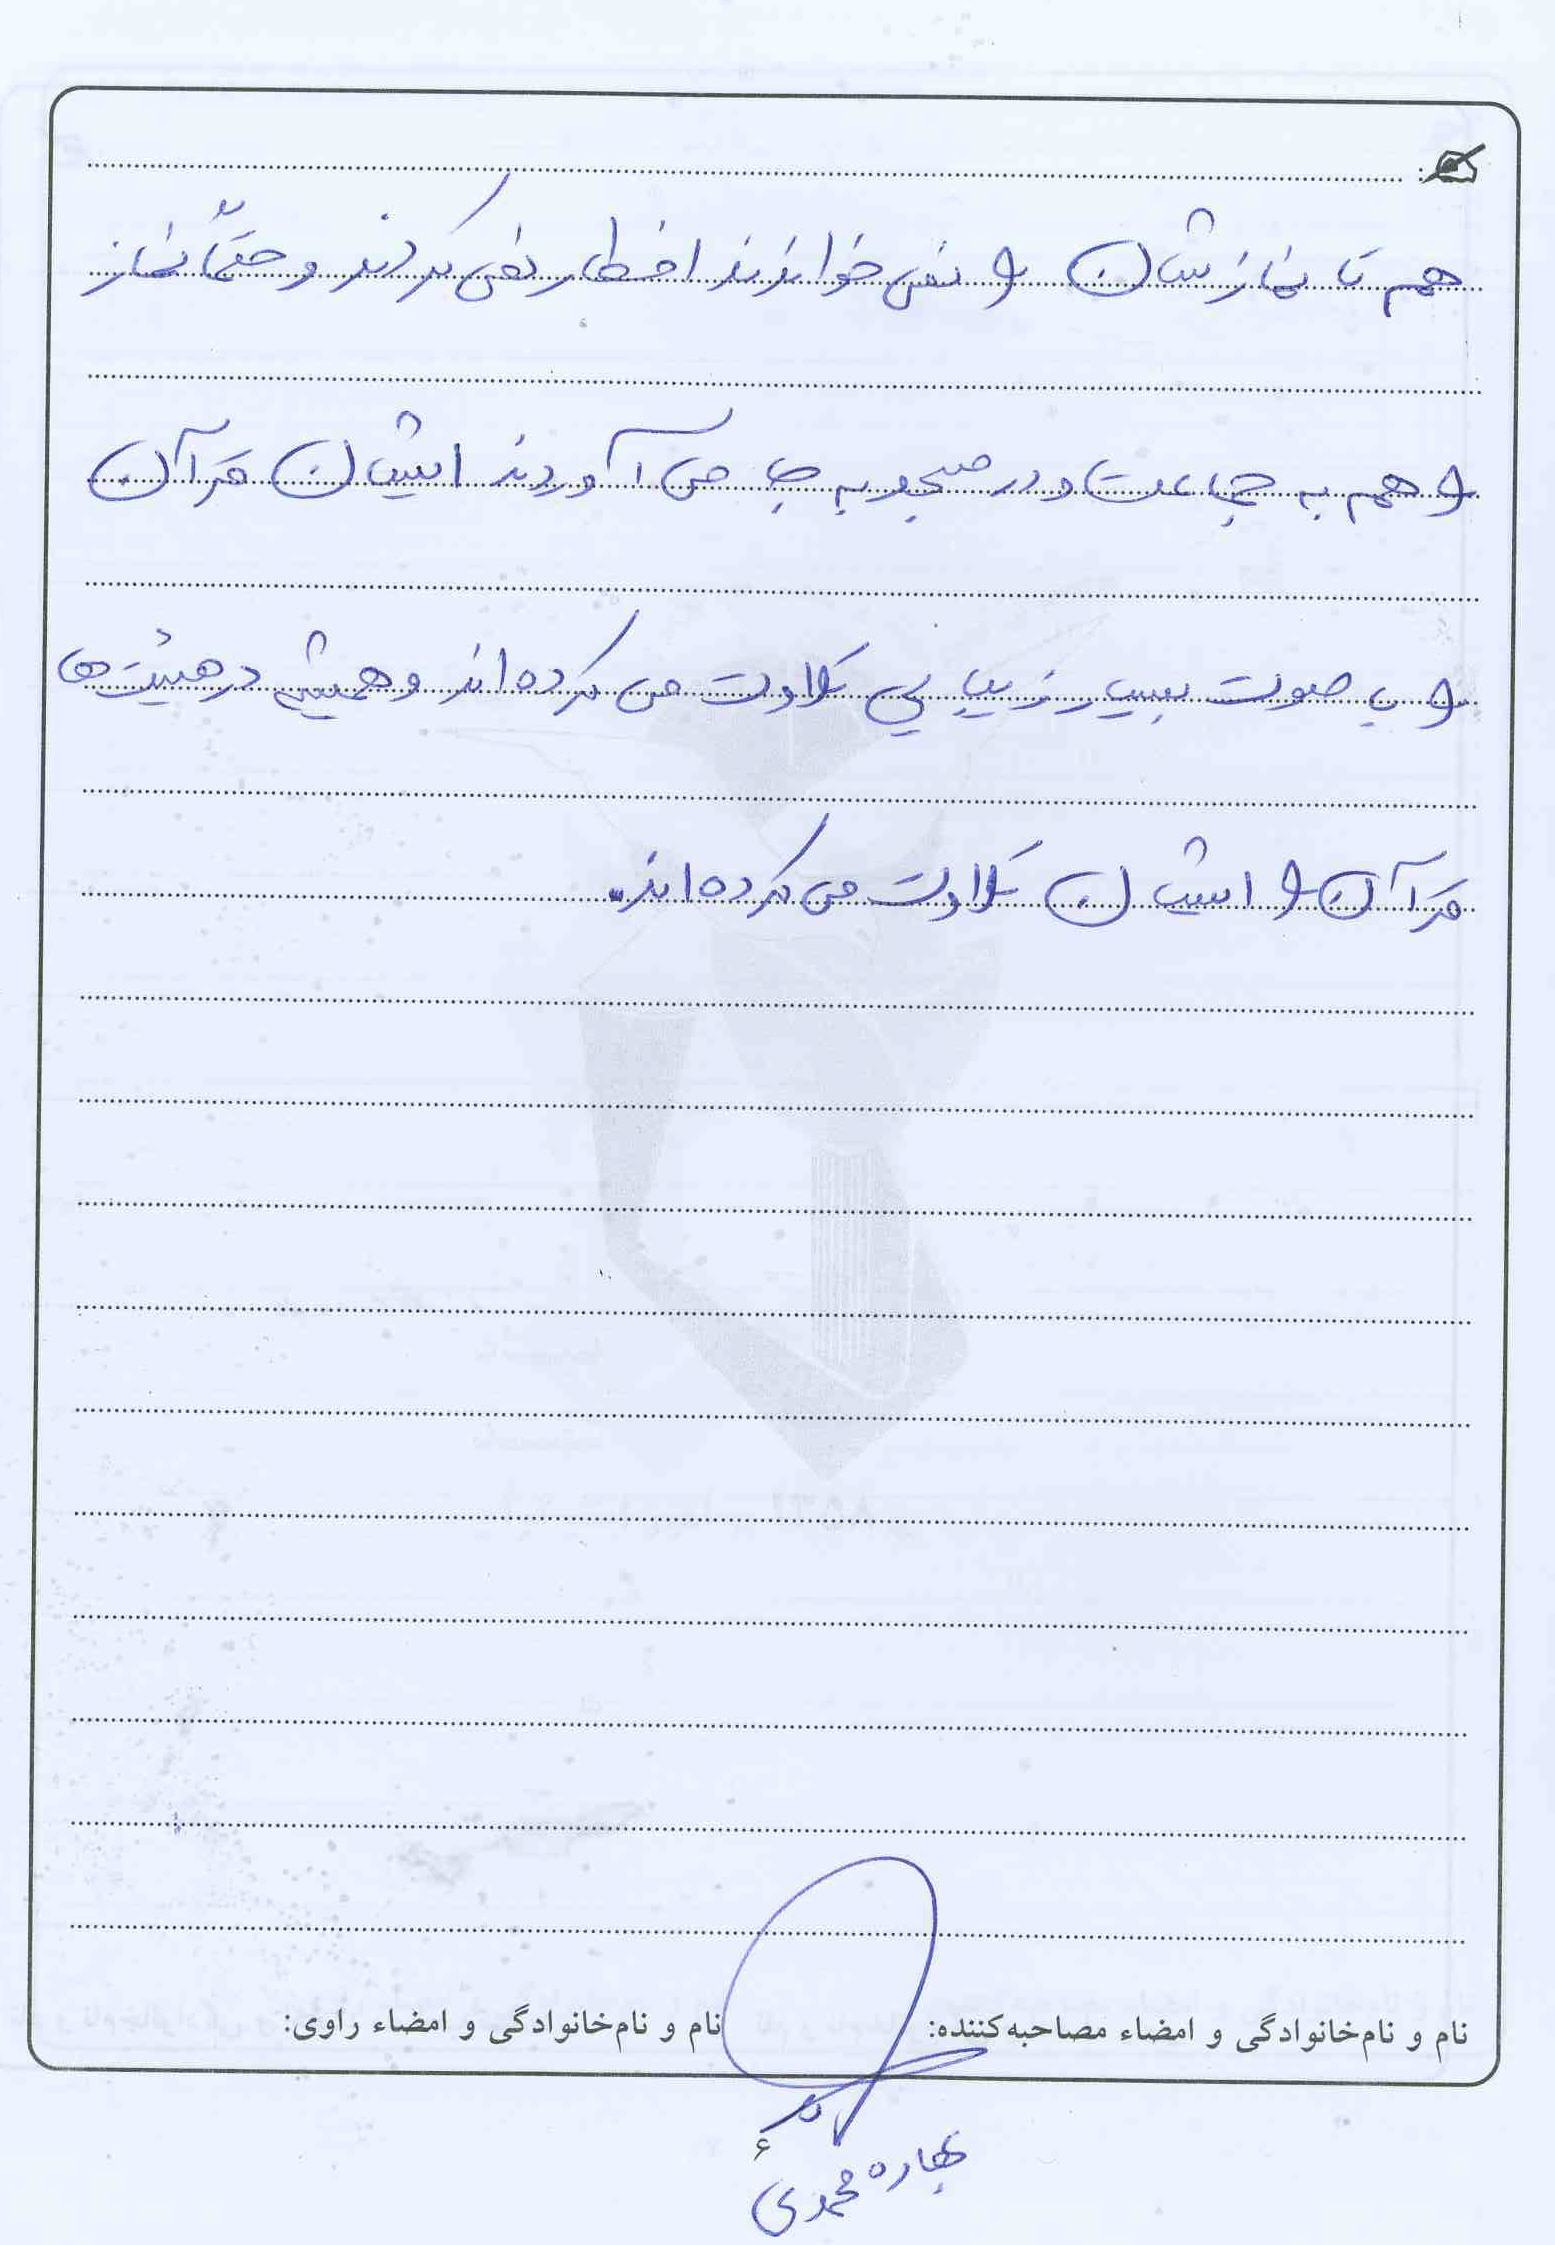 هم تا نمازشان را نمی خواندند افطار نمی کردند و حتماً نماز
را هم به جماعت و در مسجد به جا می آوردند ایشان قرآن
را با صوت بسیار زیبایی تلاوت می کرده اند و همیشه در هیئت ها
قرآن را ایشان تلاوت می کرده اند.
نام و نام‌خانوادگی و امضاء مصاحبه‌کننده: نام و نام‌خانوادگی و امضاء راوی:
۶
بهاره محمدی